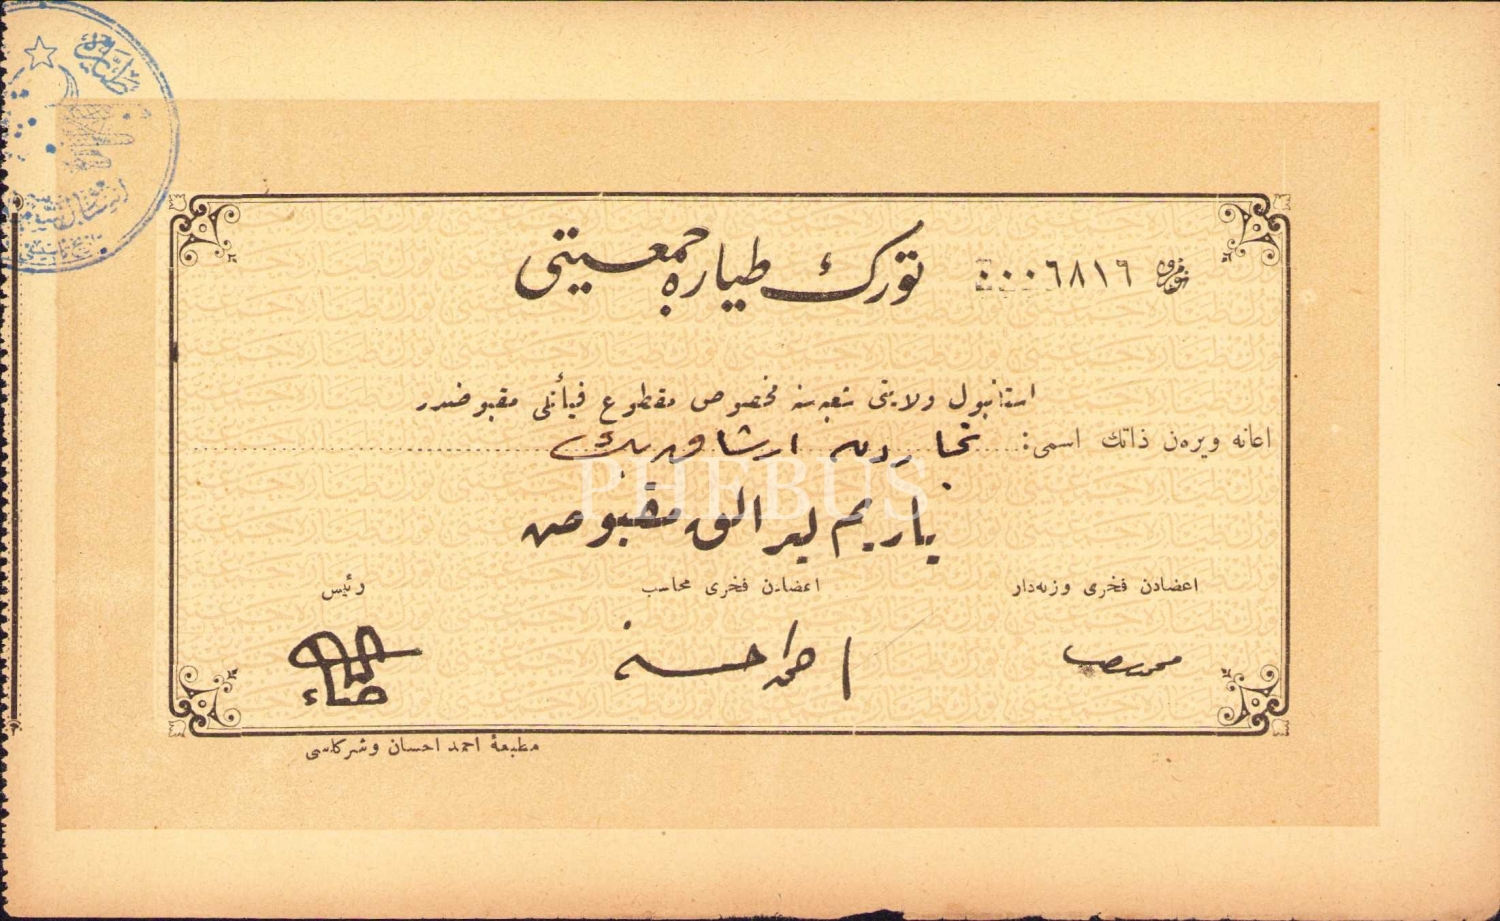 تورك طياره جمعيتى
نومرو ٠٠٠٦٨١٦
استانبول ولايتى شعبه سنه مخصوص مقطوع فيأتلى مقبوضدر
اعانه ويره‌ن ذاتك اسمى: تجاردن ارشاویر بك
PHEBUS
ياريم ليرالق مقبوض
اعضادن فخرى وزنه‌دار
اعضادن فخرى محاسب
رئيس
مطبعۀ احمد احسان وشركاسى